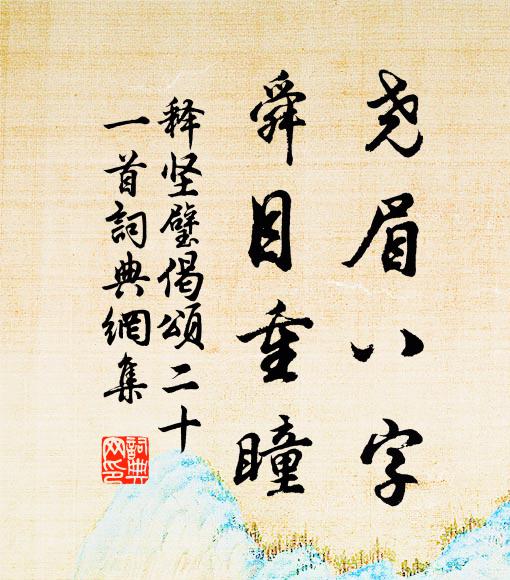 尧眉八字
舜目重瞳
释坚璧偈頌二十
一首詞典網集
詞典网印